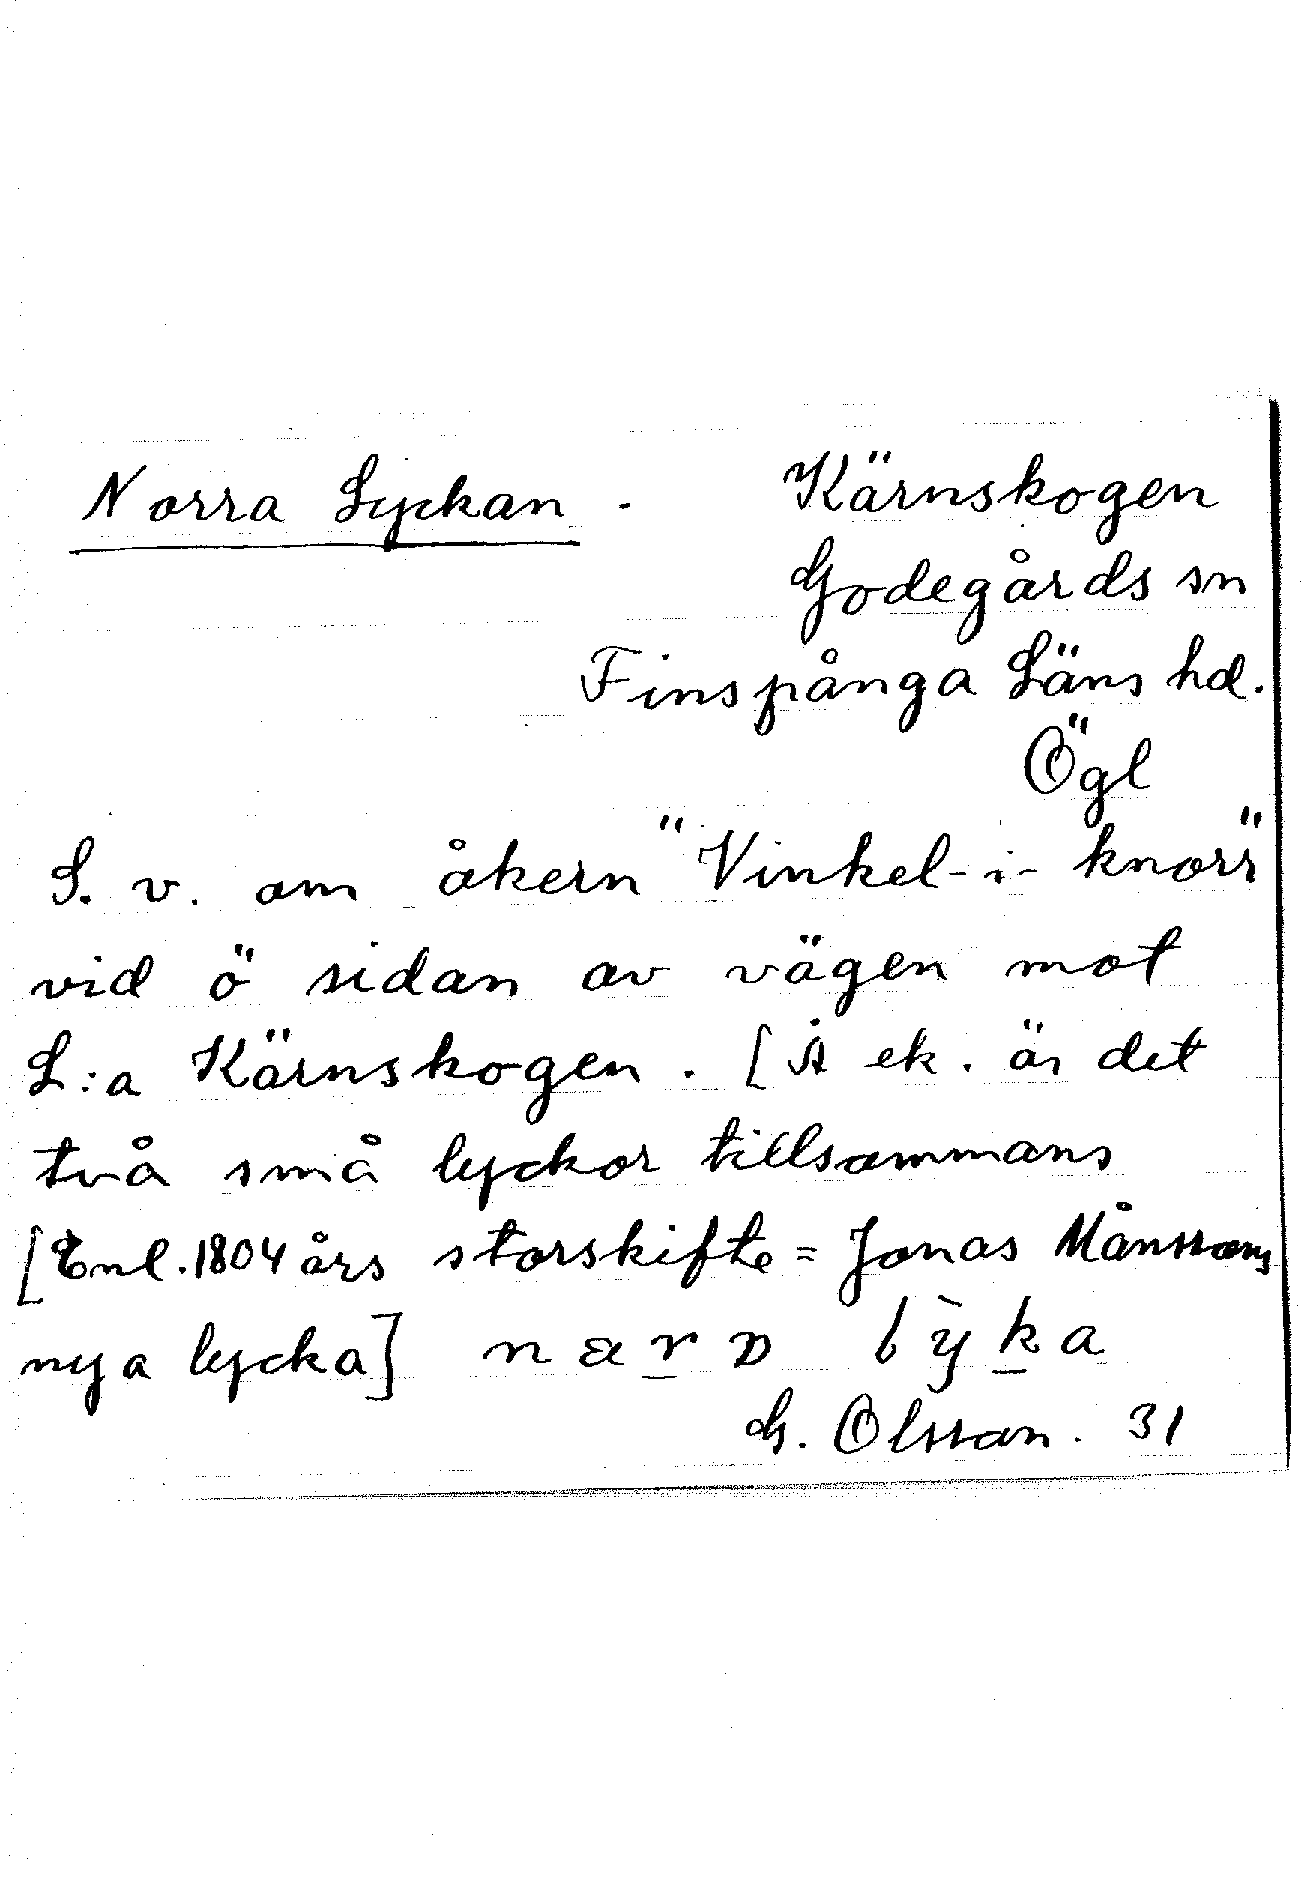 Norra Lyckan. Kärnskogen
Godegårds sn
Finspånga Läns hd.
Ögl
S. v. om åkern "Vinkel-i-knorr"
vid ö sidan av vägen mot
L:a Kärnskogen. [Å ek. är det
två små lyckor tillsammans
[Enl. 1804 års storskifte = Jonas Månssons
nya lycka]
G. Olsson. 31